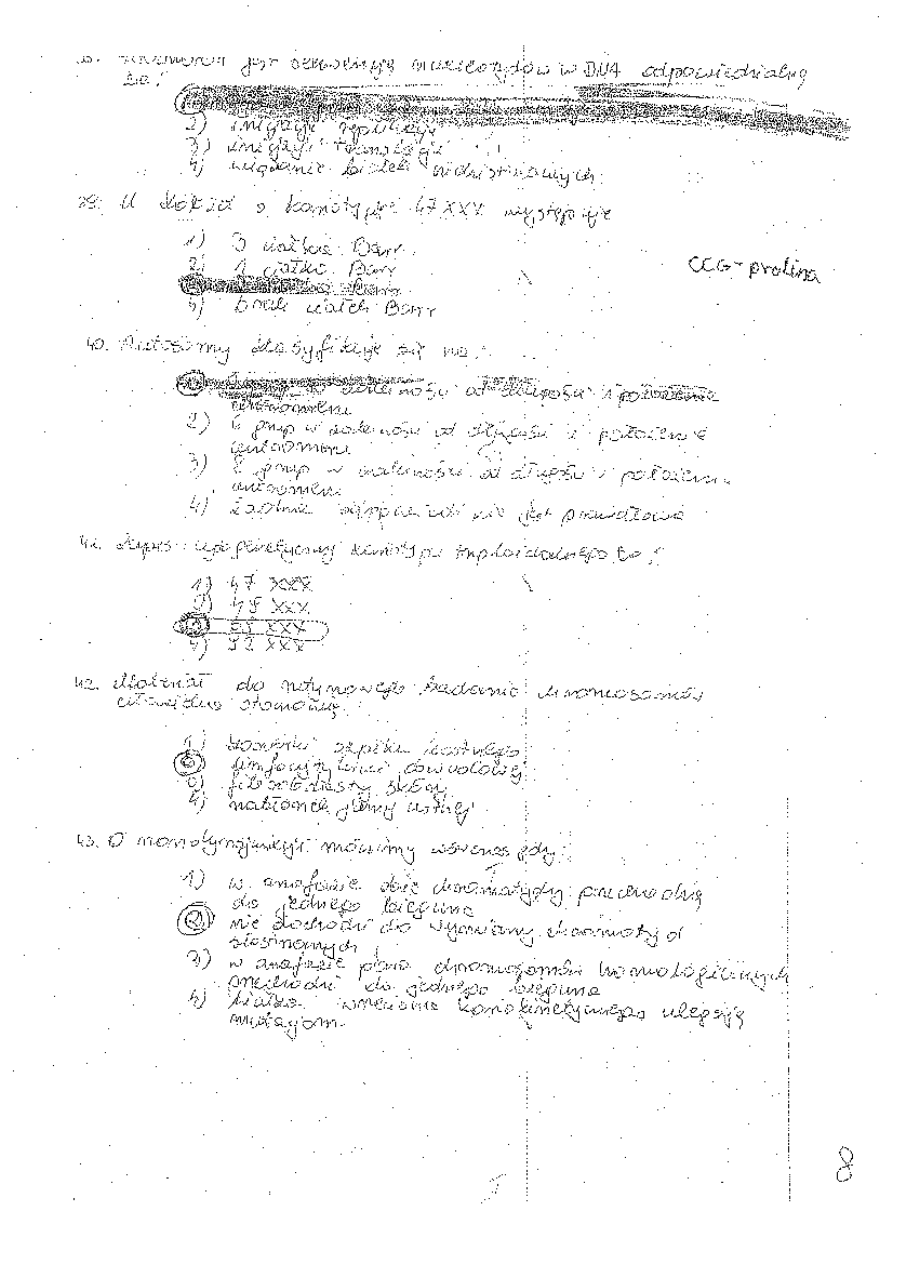 jest sekwencją nukleotydów w DNA odpowiedzialną
za:
2) inicjację replikacji
3) inicjację translacji
4) wiązanie białek niehistonowych
39. U kobiet o kariotypie 47 XXX występuje
1) 3 ciałka Barr
2) 1 ciałko Barr
4) brak ciałek Barr
CCG - prolina
40. Autosomy klasyfikuje się na:
w zależności od długości i położenia
centromeru
2) 6 grup w zależności od długości i położenia
centromeru
3) 8 grup w zależności od długości i położenia
centromeru
4) żadna odpowiedź nie jest prawidłowa
41. Zapis cytogenetyczny kariotypu triploidalnego to:
1) 47 XXX
2) 45 XXX
3) 69 XXX
4) 92 XXX
42. Materiał do rutynowego badania chromosomów
człowieka stanowią:
1) komórki szpiku kostnego
limfocyty krwi obwodowej
3) fibroblasty skóry
4) nabłonek jamy ustnej
43. O nondysjunkcji mówimy wówczas gdy:
1) w anafazie obie chromatydy przechodzą
do jednego bieguna
2) nie dochodzi do wymiany chromatyd
siostrzanych
3) w anafazie para chromosomów homologicznych
przechodzi do jednego bieguna
4) białka wrzeciona kariokinetycznego ulegają
mutacjom.
8